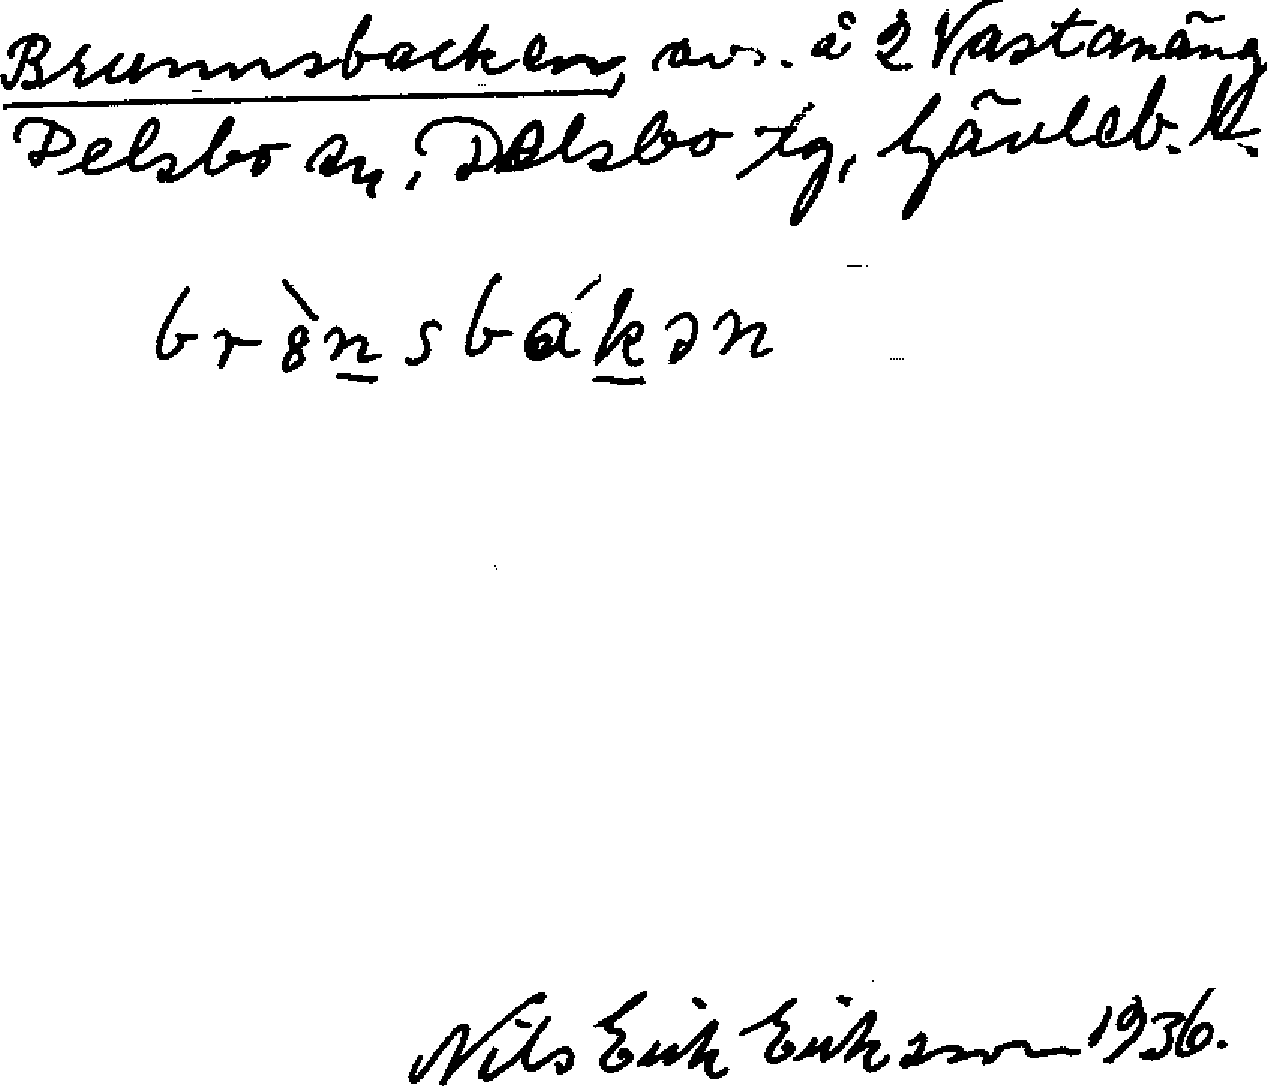 Brunnsbacken, avs. å 2 Västanäng
Delsbo sn, Delsbo tg, Gävleb. l.
br8̀n̲sbák̲ən
Nils Erik Eriksson 1936.